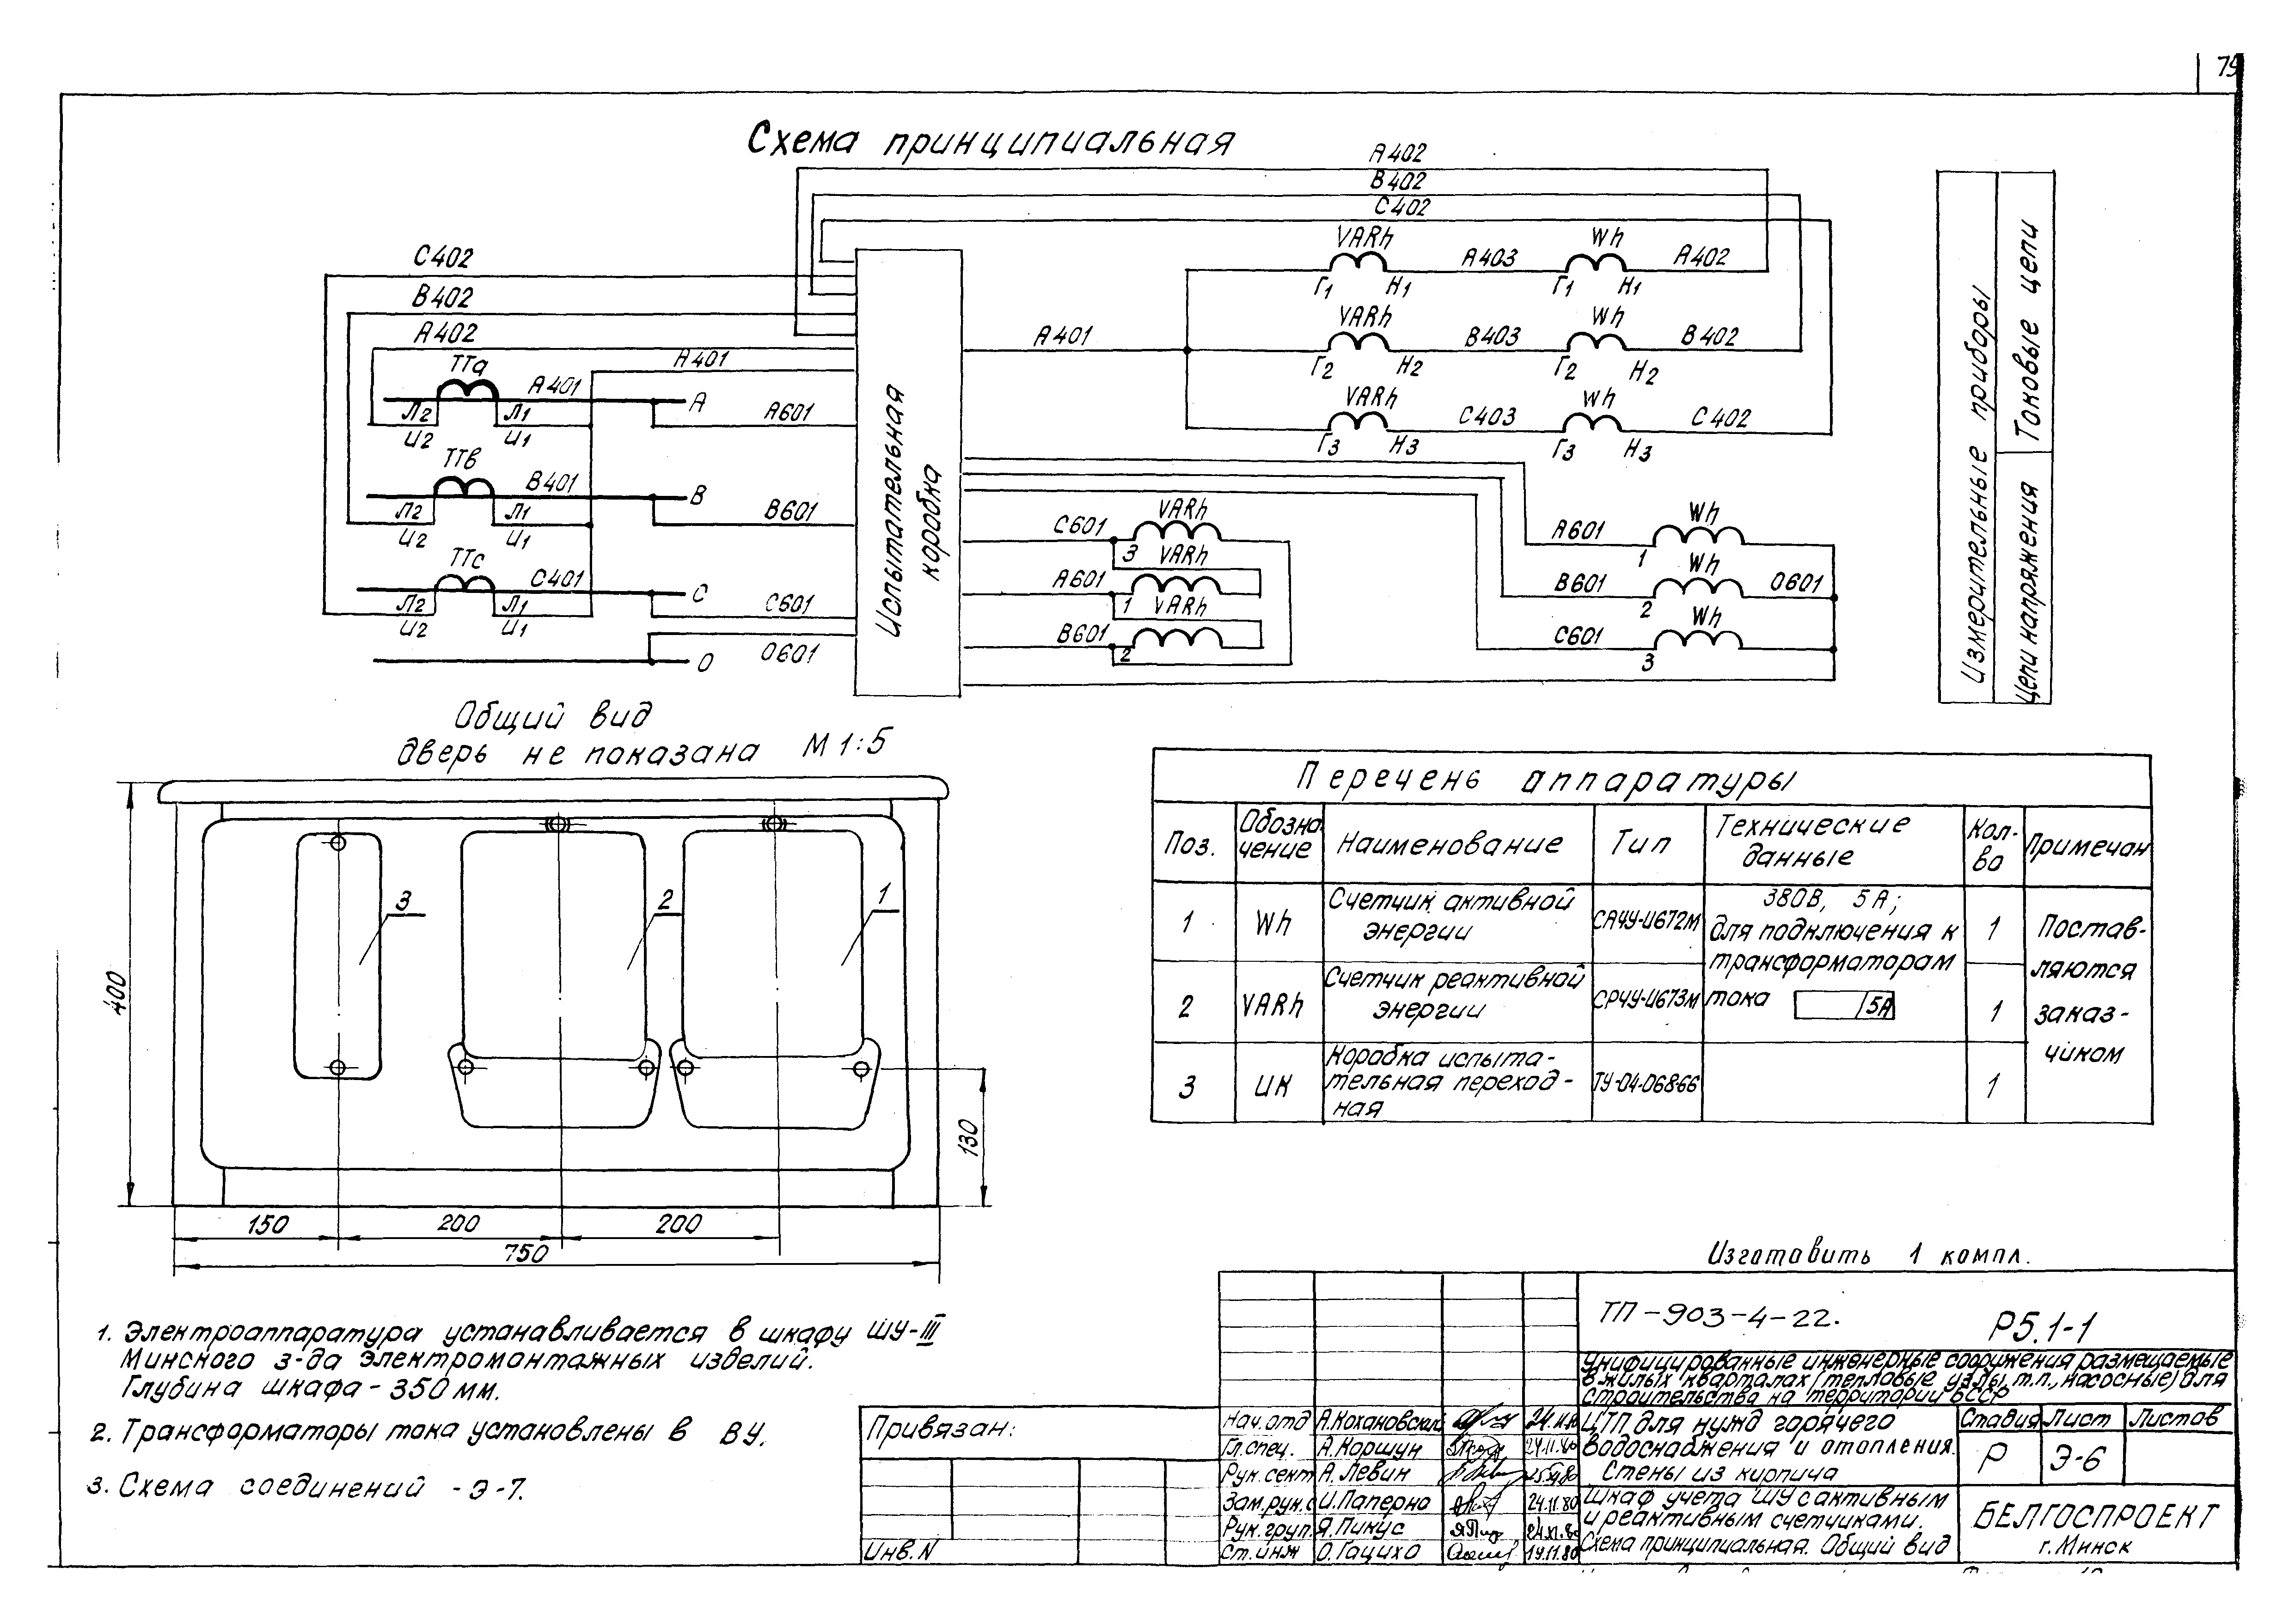 79
Схема принципиальная
А402
В402
С402
С402
В402
А402
А401
ТТа
А401
А
А601
Л2
Л1
И2
И1
ТТв
В401
В
В601
Л2
Л1
И2
И1
ТТс
С401
С
С601
Л2
Л1
И2
И1
О
О601
Испытательная
коробка
А401
VARh
А403
Wh
А402
Г1
Н1
Г1
Н1
VARh
В403
Wh
В402
Г2
Н2
Г2
Н2
VARh
С403
Wh
С402
Г3
Н3
Г3
Н3
С601
VARh
3
А601
VARh
1
В601
VARh
2
А601
Wh
1
В601
Wh
О601
2
С601
Wh
3
Измерительные приборы
Токовые цепи
Цепи напряжения
Общий вид
дверь не показана М 1:5
3
2
1
400
130
150
200
200
750
Перечень аппаратуры
Поз.
Обозна
чение
Наименование
Тип
Технические
данные
Кол-
во
Примечан
1
Wh
Счетчик активной
энергии
САЧУ-И672М
380В, 5А;
для подключения к
трансформаторам
тока
/5А
1
Постав-
ляются
заказ-
чиком
2
VARh
Счетчик реактивной
энергии
СРЧУ-И673М
1
3
ИК
Коробка испыта-
тельная переход-
ная
ТУ-04-068-66
1
Изготовить 1 компл.
1. Электроаппаратура устанавливается в шкафу ШУ-III
Минского з-да электромонтажных изделий.
Глубина шкафа - 350 мм.
2. Трансформаторы тока установлены в ВУ.
3. Схема соединений - Э-7.
Привязан:
Инв. N
ТП-903-4-22.
Р5.1-1
Унифицированные инженерные сооружения размещаемые
в жилых кварталах (тепловые узлы, т.п., насосные) для
строительства на территории БССР
Нач. отд А. Кохановский 24.11.80
Гл. спец. А. Коршун 24.11.80
Рук. сект А. Левин
Зам. рук. с И. Паперно 24.11.80
Рук. груп. Я. Пикус 24.XI.80
Ст. инж О. Гацихо 19.11.80
ЦТП для нужд горячего
водоснабжения и отопления.
Стены из кирпича
Стадия
Лист
Листов
Р
Э-6
Шкаф учета ШУ с активным
и реактивным счетчиками.
Схема принципиальная. Общий вид
БЕЛГОСПРОЕКТ
г. Минск